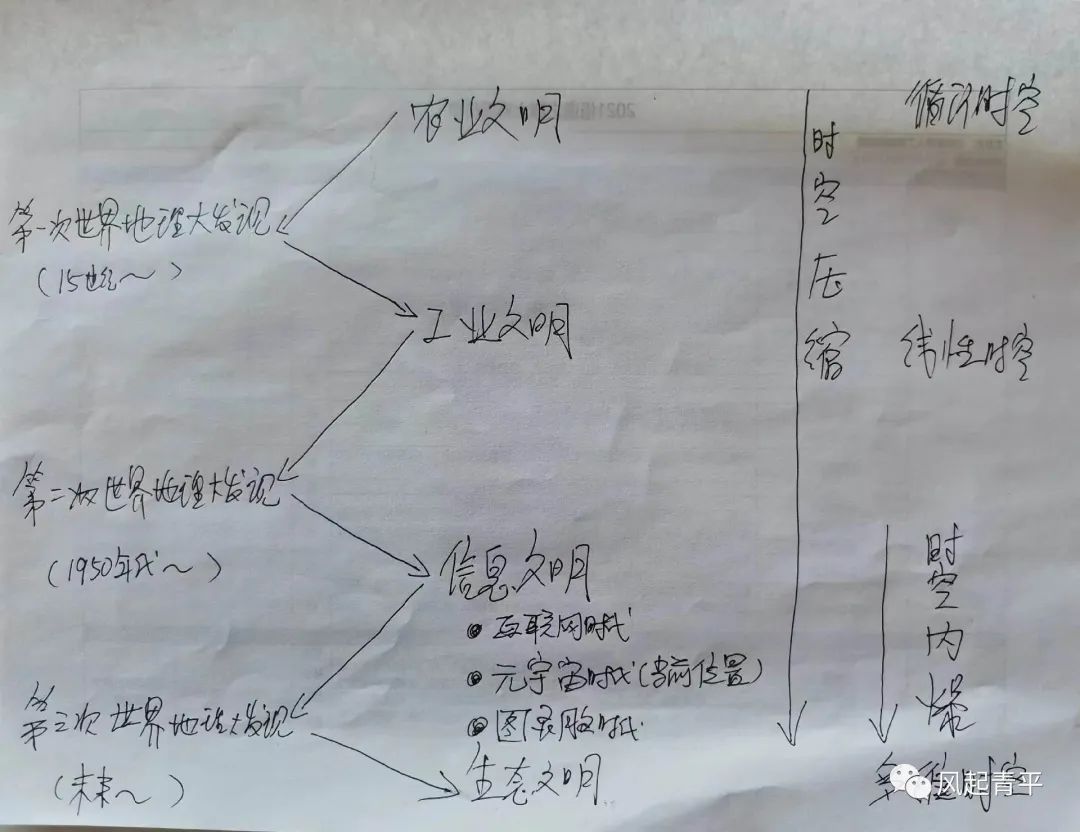 农业文明
循环时空
时空压缩
第一次世界地理大发现
(15世纪~)
工业文明
线性时空
第二次世界地理大发现
(1950年代~)
信息文明
• 互联网时代
• 元宇宙时代(当前位置)
• 图灵脑时代
时空内爆
第三次世界地理大发现
(未来~)
生态文明
时空
风起青平